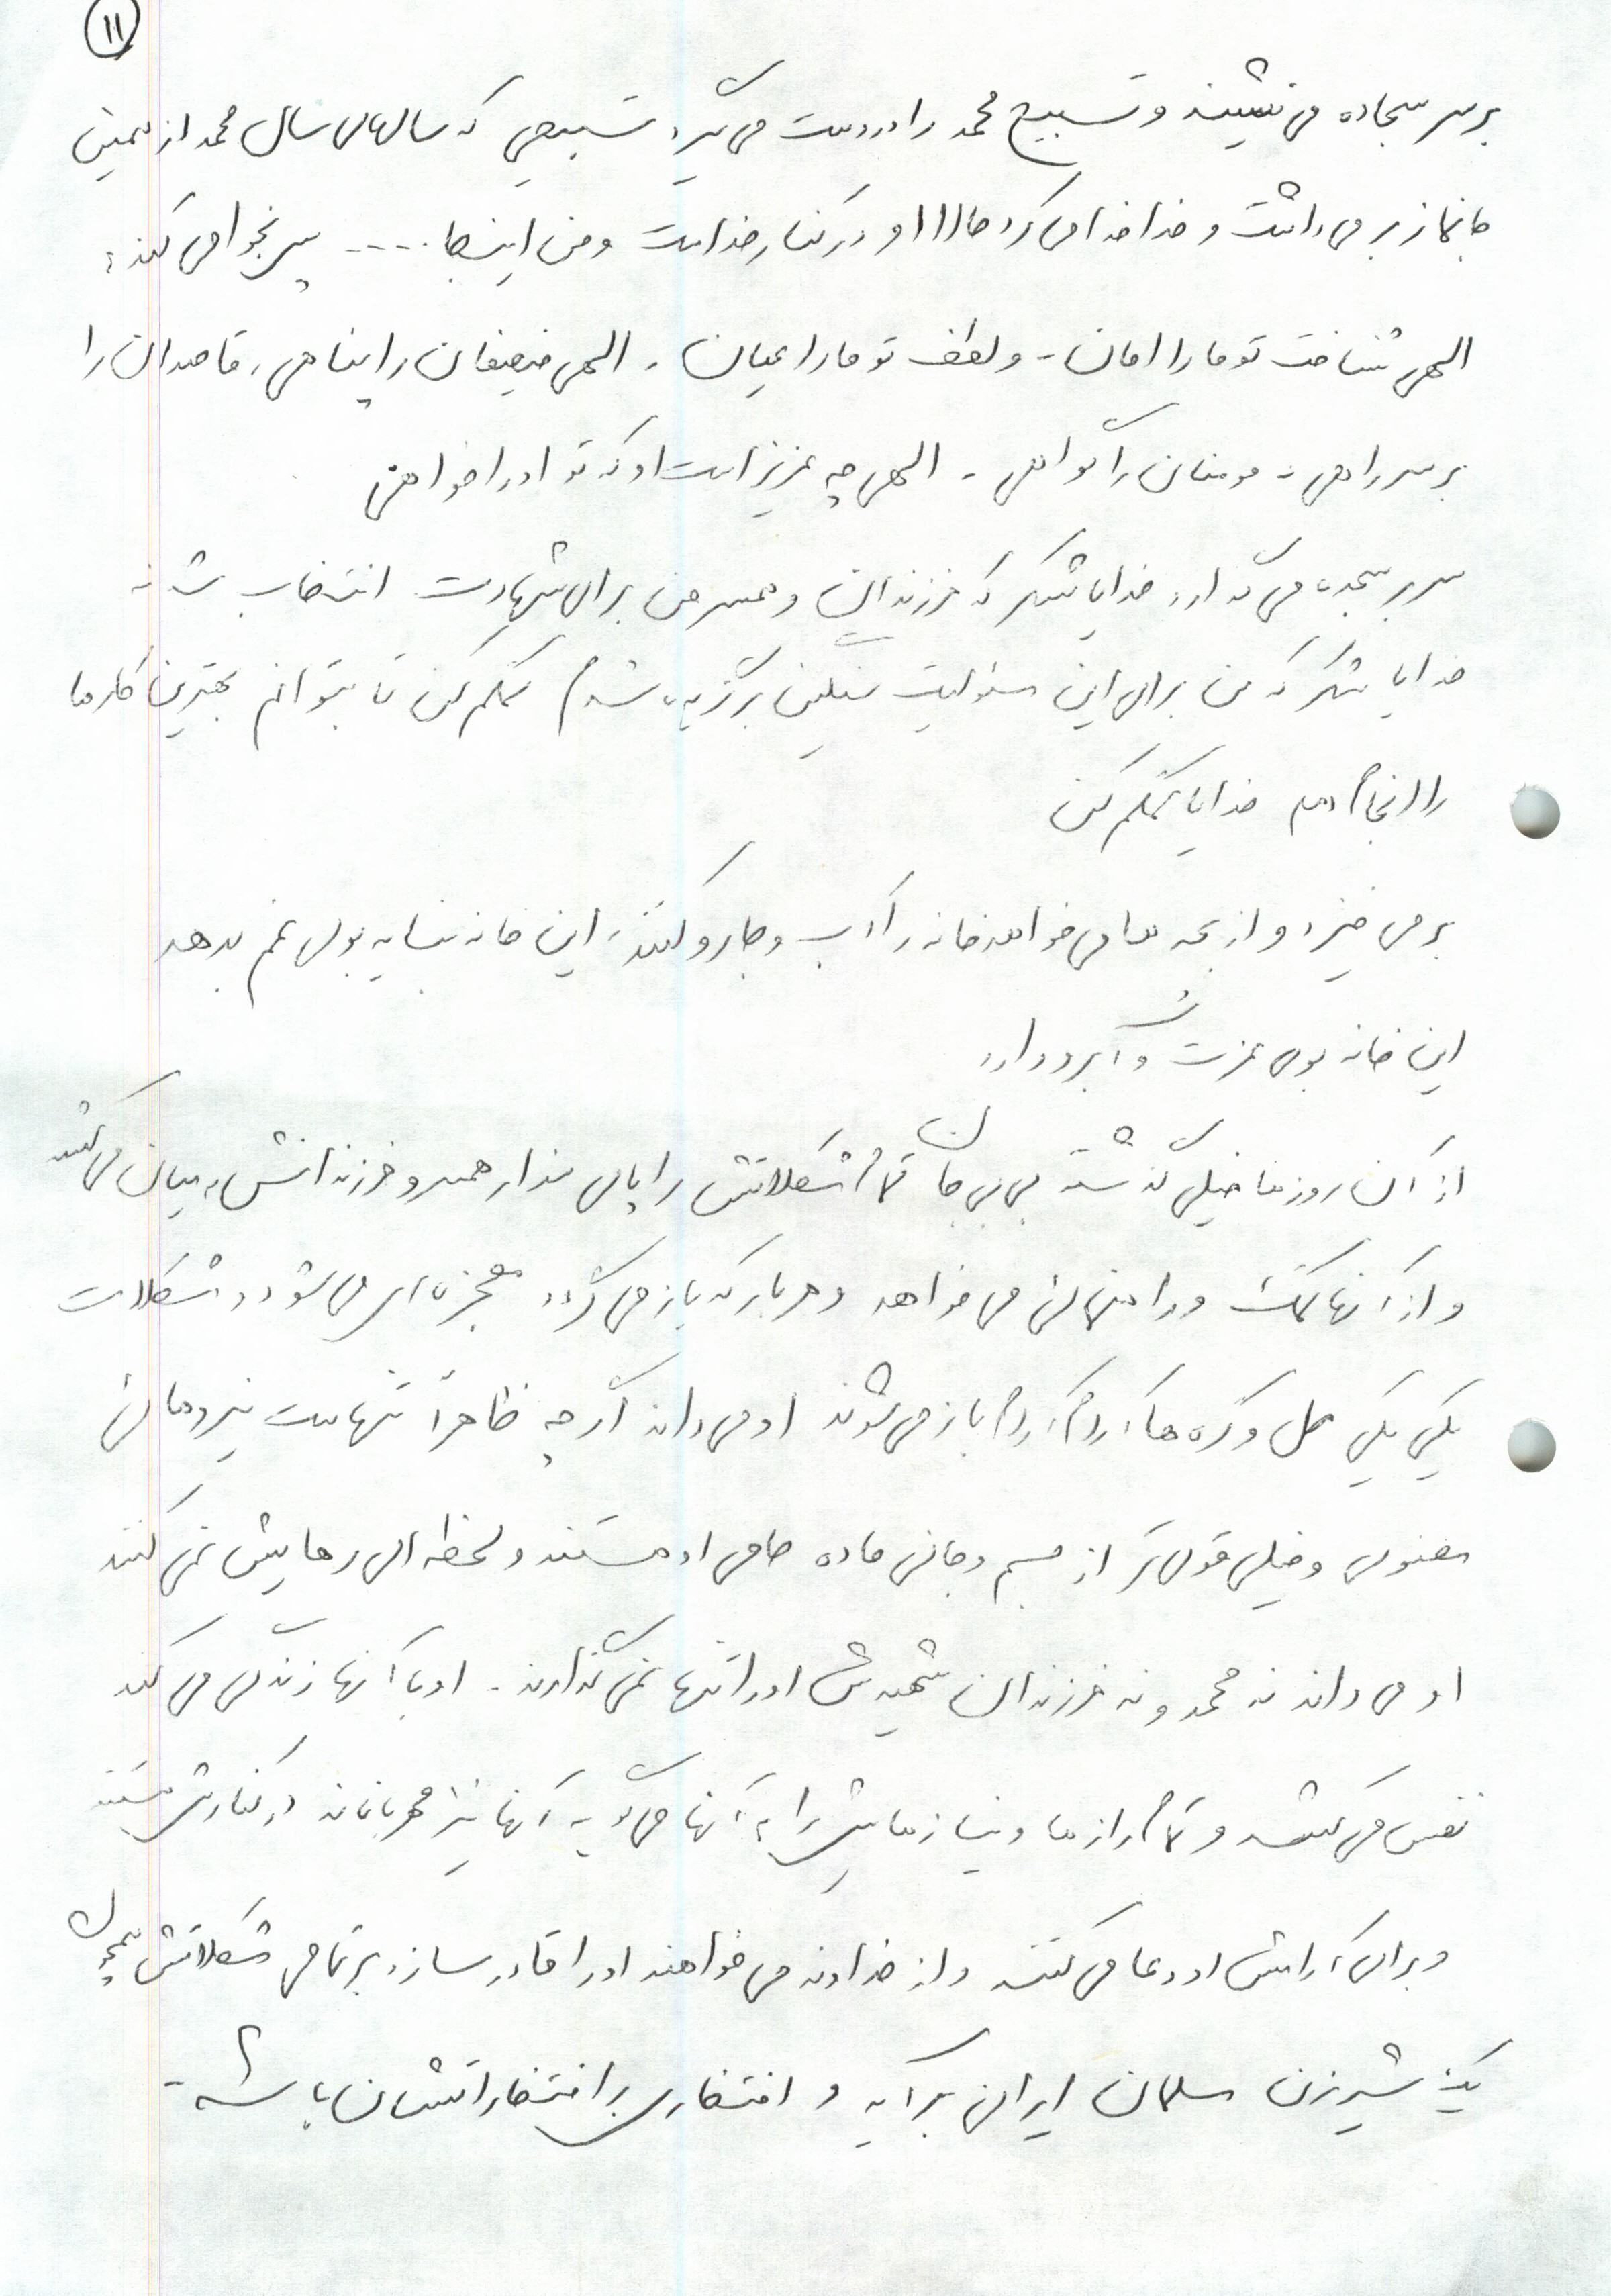 ۱۱
بر سر سجاده می نشیند و تسبیح محمد را در دست می گیرد تسبیحی که سالهای سال محمد از همین
جانماز بر می داشت و خدا خدا می کرد حالا او در کنار خداست و من اینجا .... پس نجوا می کند :
الهی شناخت تو ما را امان - و لطف تو ما را عیان . الهی ضعیفان را پناهی ، قاصدان را
بر سر راهی - مومنان را گواهی - الهی چه عزیز است او که تو او را خواهی
سر بر سجده می گذارد خدایا شکر که فرزندان و همسر من برای شهادت انتخاب شدند
خدایا شکر که من برای این مسئولیت سنگین برگزیده شدم کمکم کن تا بتوانم بهترین کارها
را انجام دهم خدایا کمکم کن
بر می خیزد و از بچه ها می خواهد خانه را آب و جارو کنند ، این خانه نباید بوی غم بدهد
این خانه بوی عزت و آبرو دارد
از آن روزها خیلی گذشته بی بی جان تمام مشکلاتش را پای مزار همسر و فرزندانش به میان می کشد
و از آنها کمک و راهنمائی می خواهد و هر بار که باز می گردد معجزه ای می شود و مشکلات
یکی یکی حل و گره ها آرام آرام باز می شوند او می داند اگر چه ظاهراً تنهاست نیروهائی
معنوی و خیلی قوی تر از جسم و جانی ماده حامی او هستند و لحظه ای رهایش نمی کنند
او می داند نه محمد و نه فرزندان شهیدش او را تنها نمی گذارند . او با آنها زندگی می کند
نفس می کشد و تمام رازها و نیازهایش را به آنها می گوید آنها نیز مهربانانه در کنارش هستند
و برای آرامش او دعا می کنند و از خداوند می خواهند او را قادر سازد بر تمامی مشکلاتش همچون
یک شیرزن مسلمان ایرانی برآید و افتخاری بر افتخاراتشان باشد -